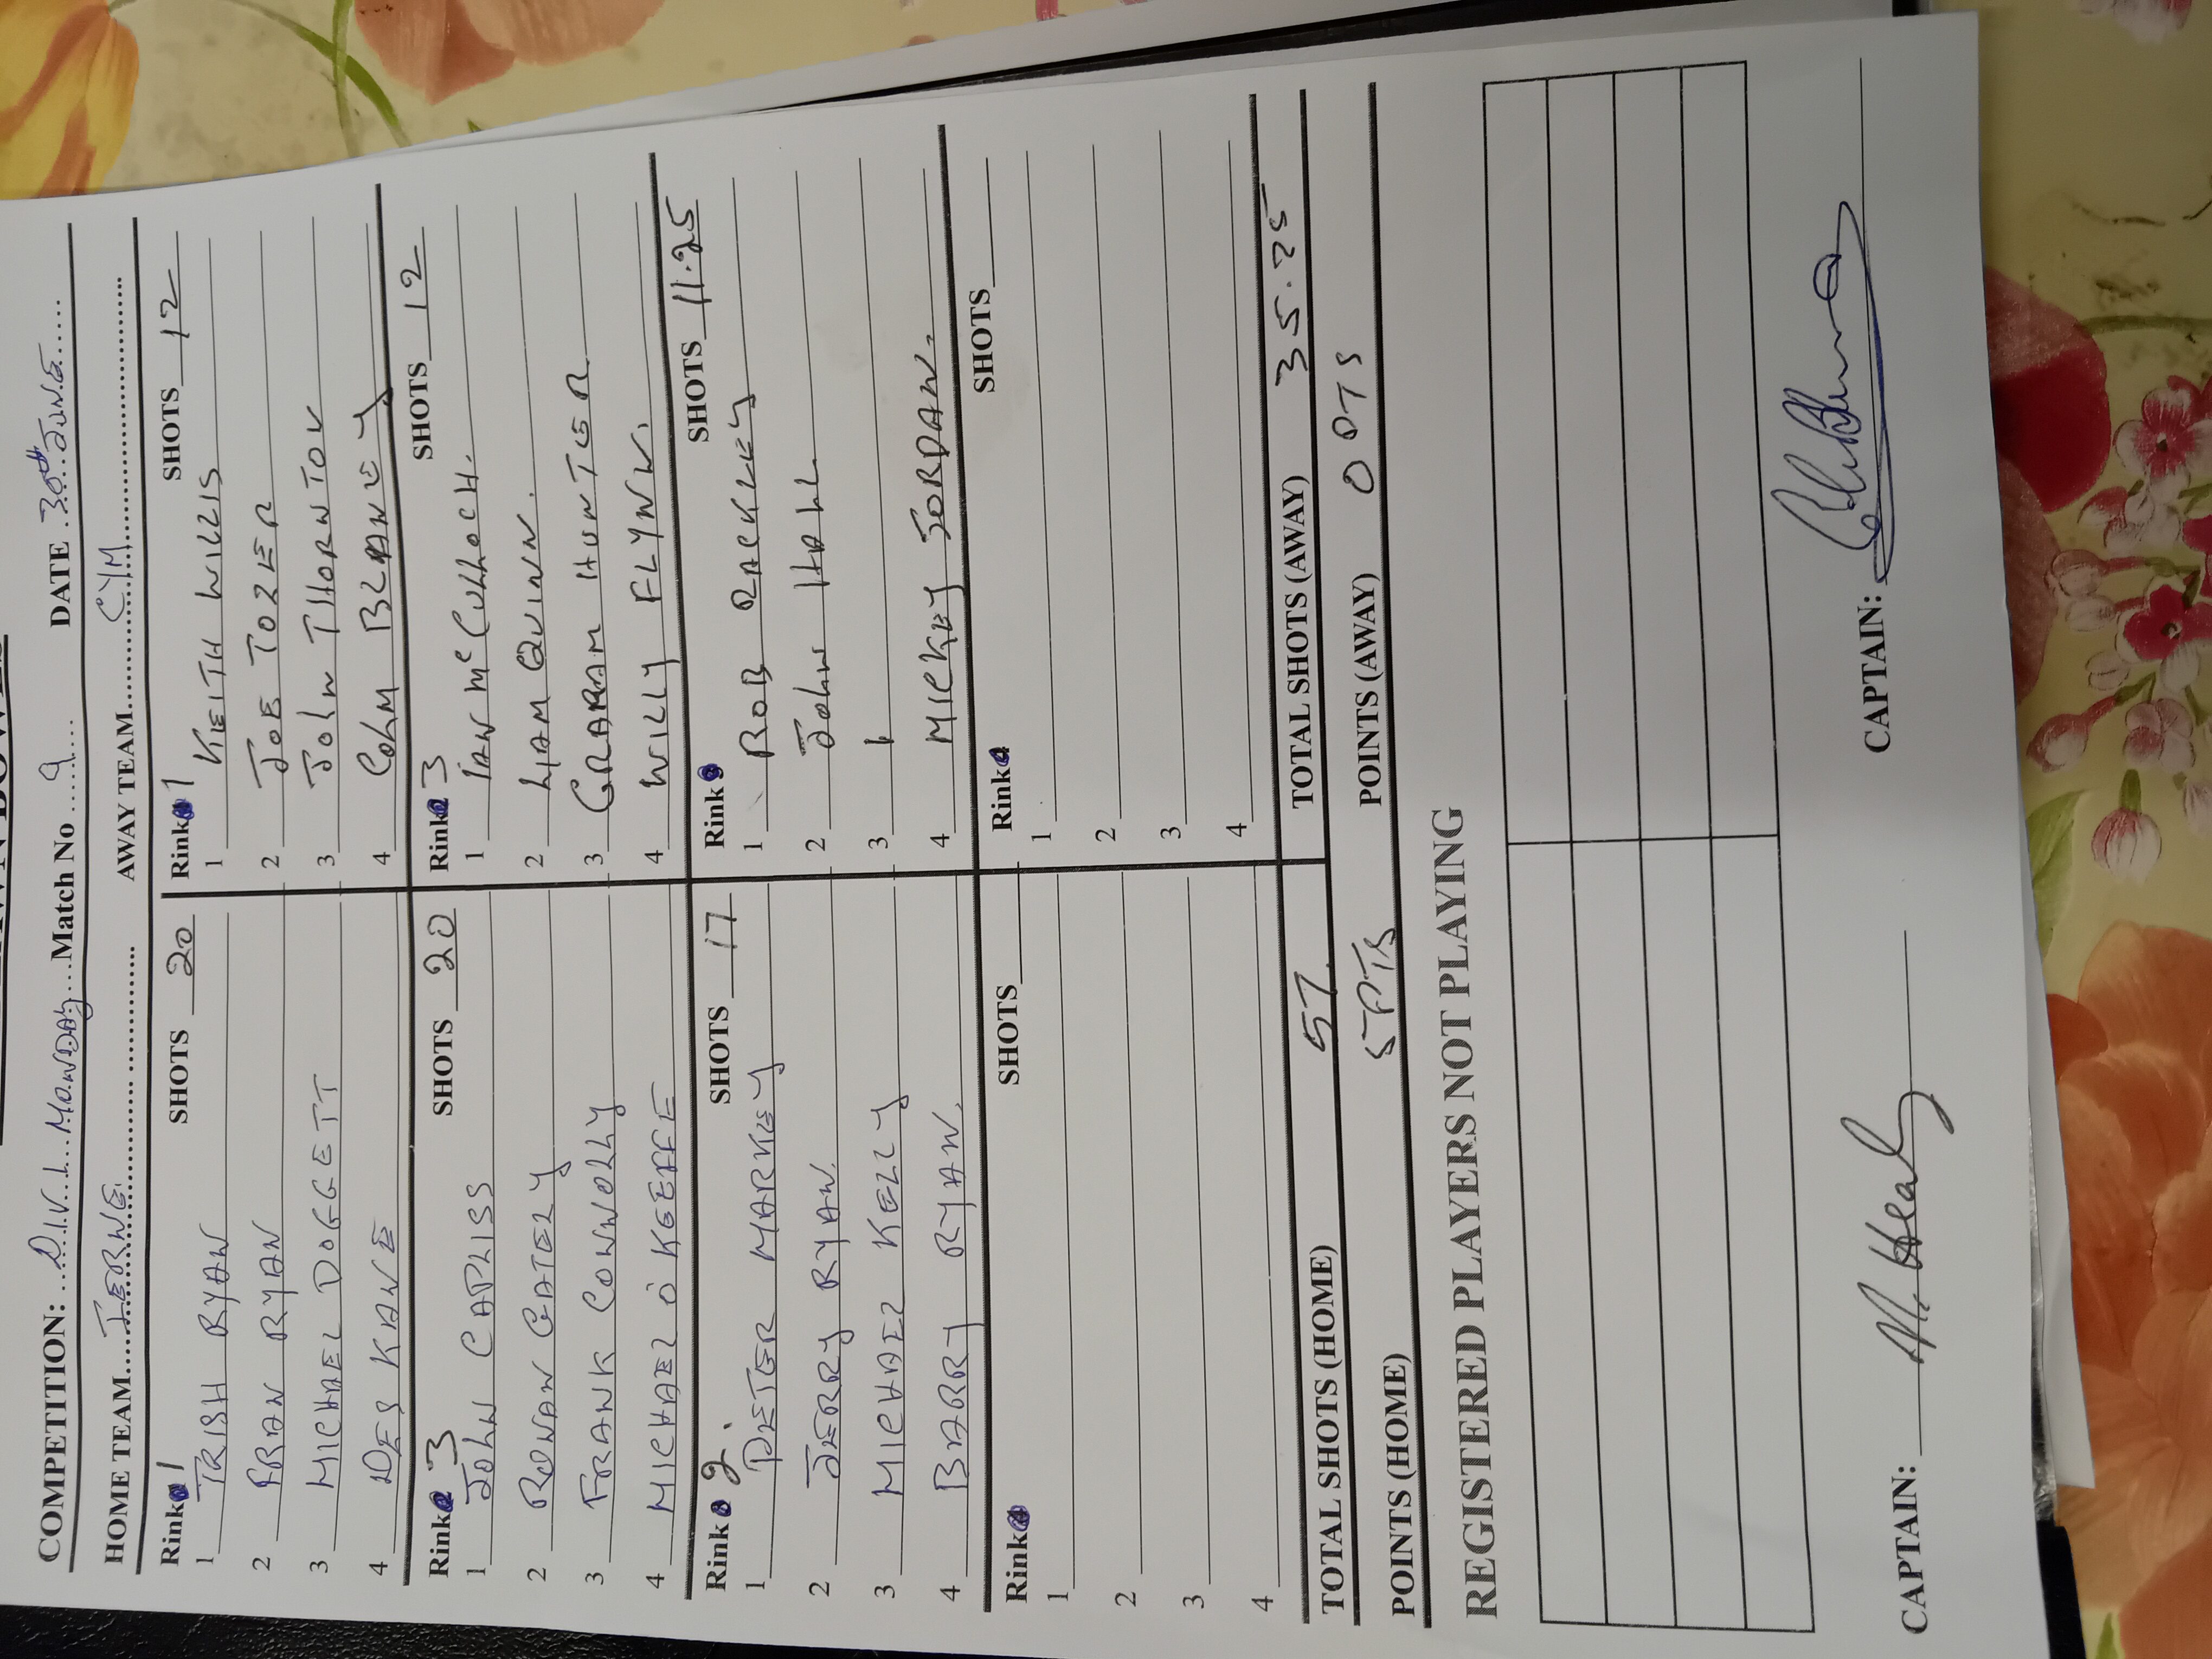 COMPETITION: DIV. 1. MONDAY Match No 9 DATE 30th JUNE
HOME TEAM IERNE AWAY TEAM CYM
Rink 1 SHOTS 20 Rink 1 SHOTS 12
1 TRISH RYAN 1 KEITH WILLIS
2 FRAN RYAN 2 JOE TOZER
3 MICHAEL DOGGETT 3 JOHN THORNTON
4 DES KANE 4 COLM BLANEY
Rink 3 SHOTS 20 Rink 3 SHOTS 12
1 JOHN CAPLISS 1 IAN Mc CULLOCH.
2 RONAN GATELY 2 LIAM QUINN.
3 FRANK CONNOLLY 3 GRAHAM HUNTER
4 MICHAEL O KEEFFE 4 WILLY FLYNN.
Rink 2. SHOTS 17 Rink SHOTS 11.25
1 PETER MARKEY 1 ROB RACKLEY
2 JERRY RYAN. 2 JOHN HALL
3 MICHAEL KELLY 3
4 BARRY RYAN. 4 MICKEY JORDAN.
Rink 4 SHOTS Rink 4 SHOTS
1 1
2 2
3 3
4 4
TOTAL SHOTS (HOME) 57 TOTAL SHOTS (AWAY) 35.25
POINTS (HOME) 5 PTS POINTS (AWAY) 0 PTS
REGISTERED PLAYERS NOT PLAYING
CAPTAIN: M. Healy CAPTAIN: